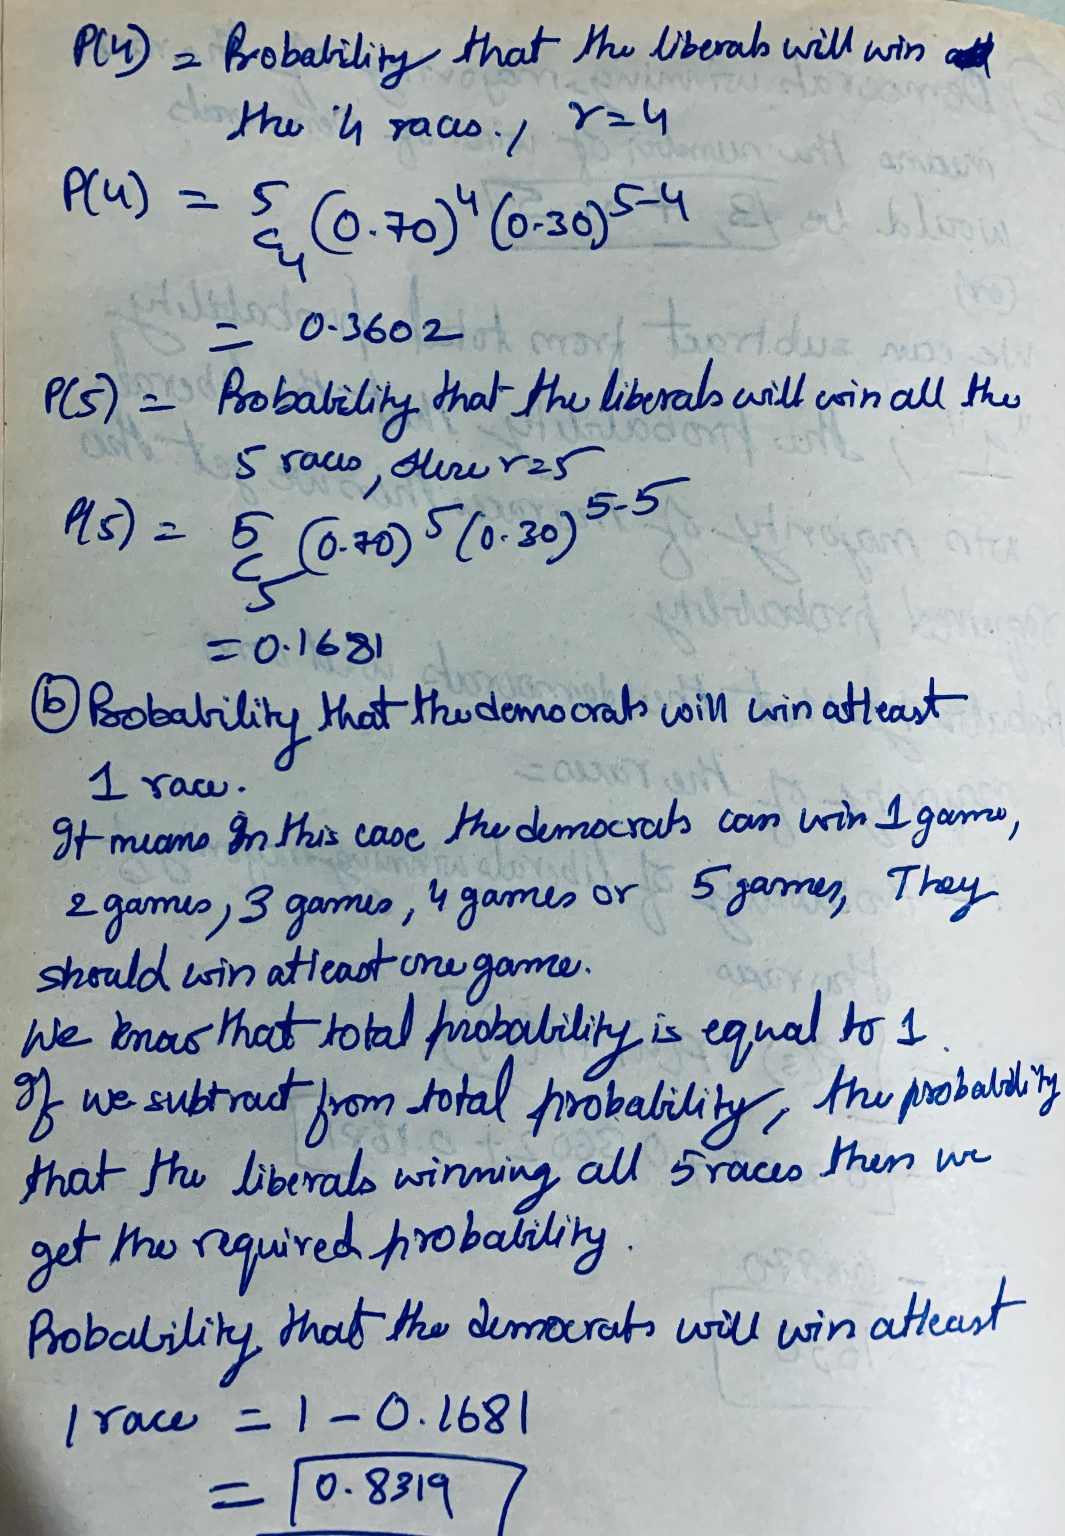 P(4) = Probability that the liberals will win
the 4 races., r=4
P(4) = 5c4 (0.70)^4 (0.30)^5-4
= 0.3602
P(5) = Probability that the liberals will win all the
5 races, Here r=5
P(5) = 5c5 (0.70)^5 (0.30)^5-5
= 0.1681
ⓑ Probability that the democrats will win atleast
1 race.
It means In this case the democrats can win 1 game,
2 games, 3 games, 4 games or 5 games, They
should win atleast one game.
We know that total probability is equal to 1.
If we subtract from total probability, the probability
that the liberals winning all 5 races then we
get the required probability.
Probability that the democrats will win atleast
1 race = 1 - 0.1681
= 0.8319